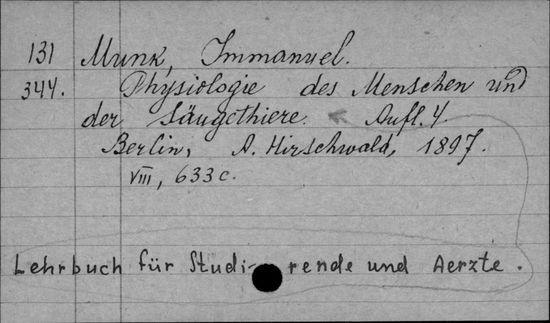 131 Munk, Immanuel.
344. Physiologie des Menschen und
der Säugethiere. Aufl. 4.
Berlin, A. Hirschwald, 1897.
VIII, 633 c.
Lehrbuch für Studi- rende und Aerzte.